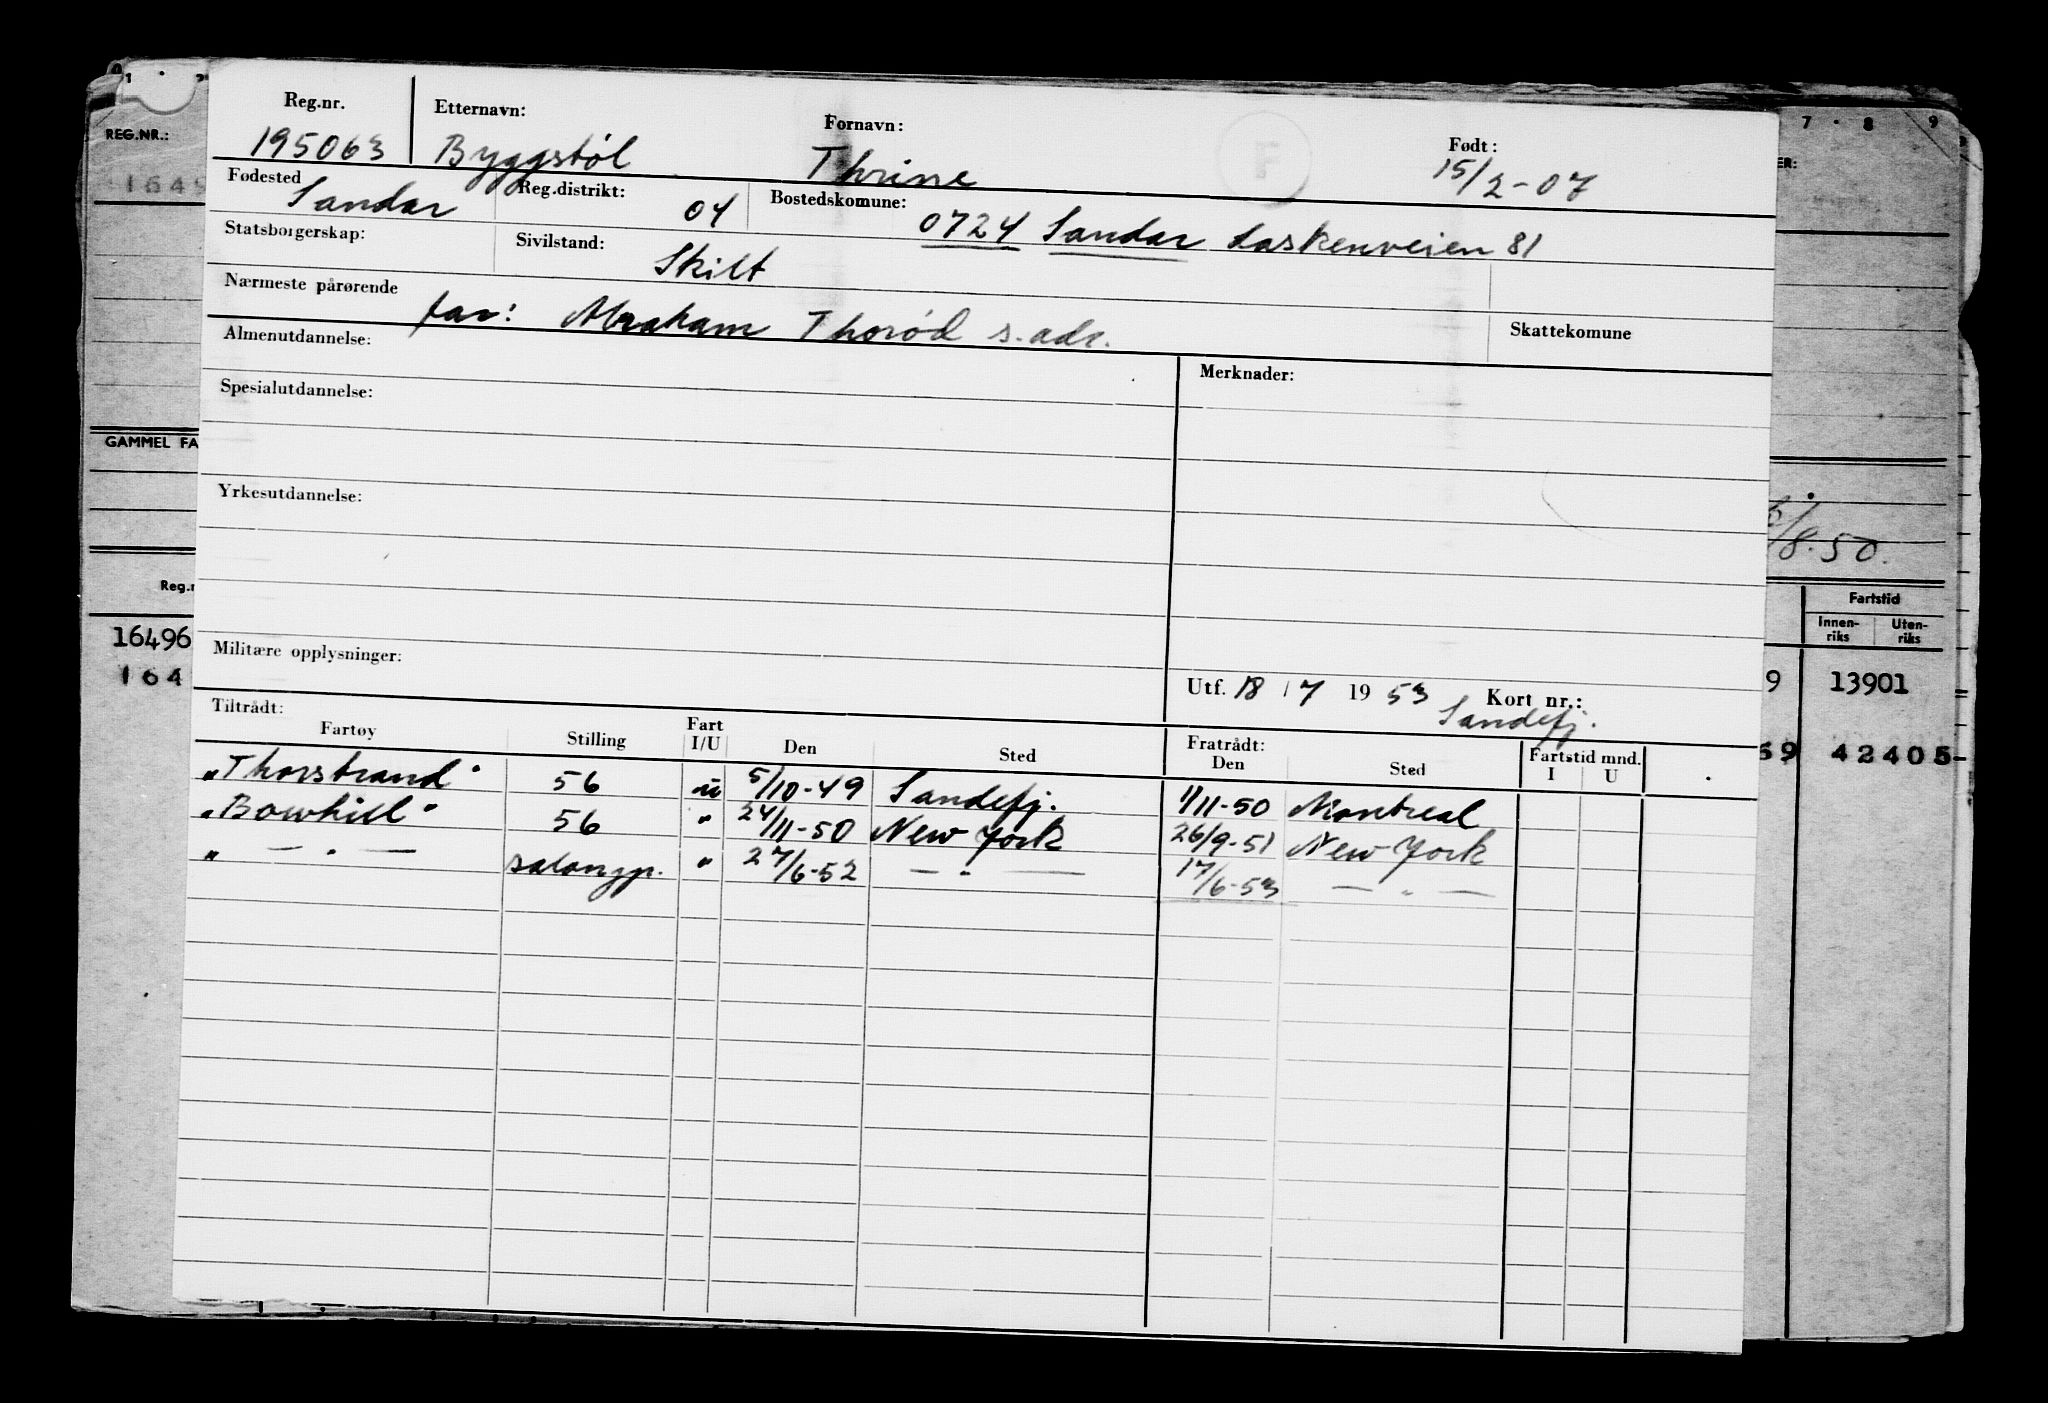 Reg.nr. Etternavn: Fornavn: Født:
195063 Byggstøl Thrine 15/2-07
Fødested Sandar Reg.distrikt: 04 Bostedskomune: 0724 Sandar Laskenveien 81
Statsborgerskap: Sivilstand: Skilt
Nærmeste pårørende far: Abraham Thorød s. adr. Skattekomune
Almenutdannelse: Merknader:
Spesialutdannelse:
Yrkesutdannelse:
Militære opplysninger:
Utf. 18 / 7 19 53 Kort nr.:
Sandefj.
Tiltrådt: Fratrådt:
Fartøy Stilling Fart I/U Den Sted Den Sted Fartstid mnd. I U
"Thorstrand" 56 u 5/10-49 Sandefj. 1/11-50 Montreal
"Bowhill" 56 " 24/11-50 New York 26/9-51 New York
" — " — salongp. " 27/6-52 — " — 17/6-53 — " —
REG.NR.:
1649
GAMMEL FA
Reg.n
16496
164
7 · 8 9
ER:
/8.50.
Fartstid
Innen-riks Uten-riks
9 13901
69 42405-